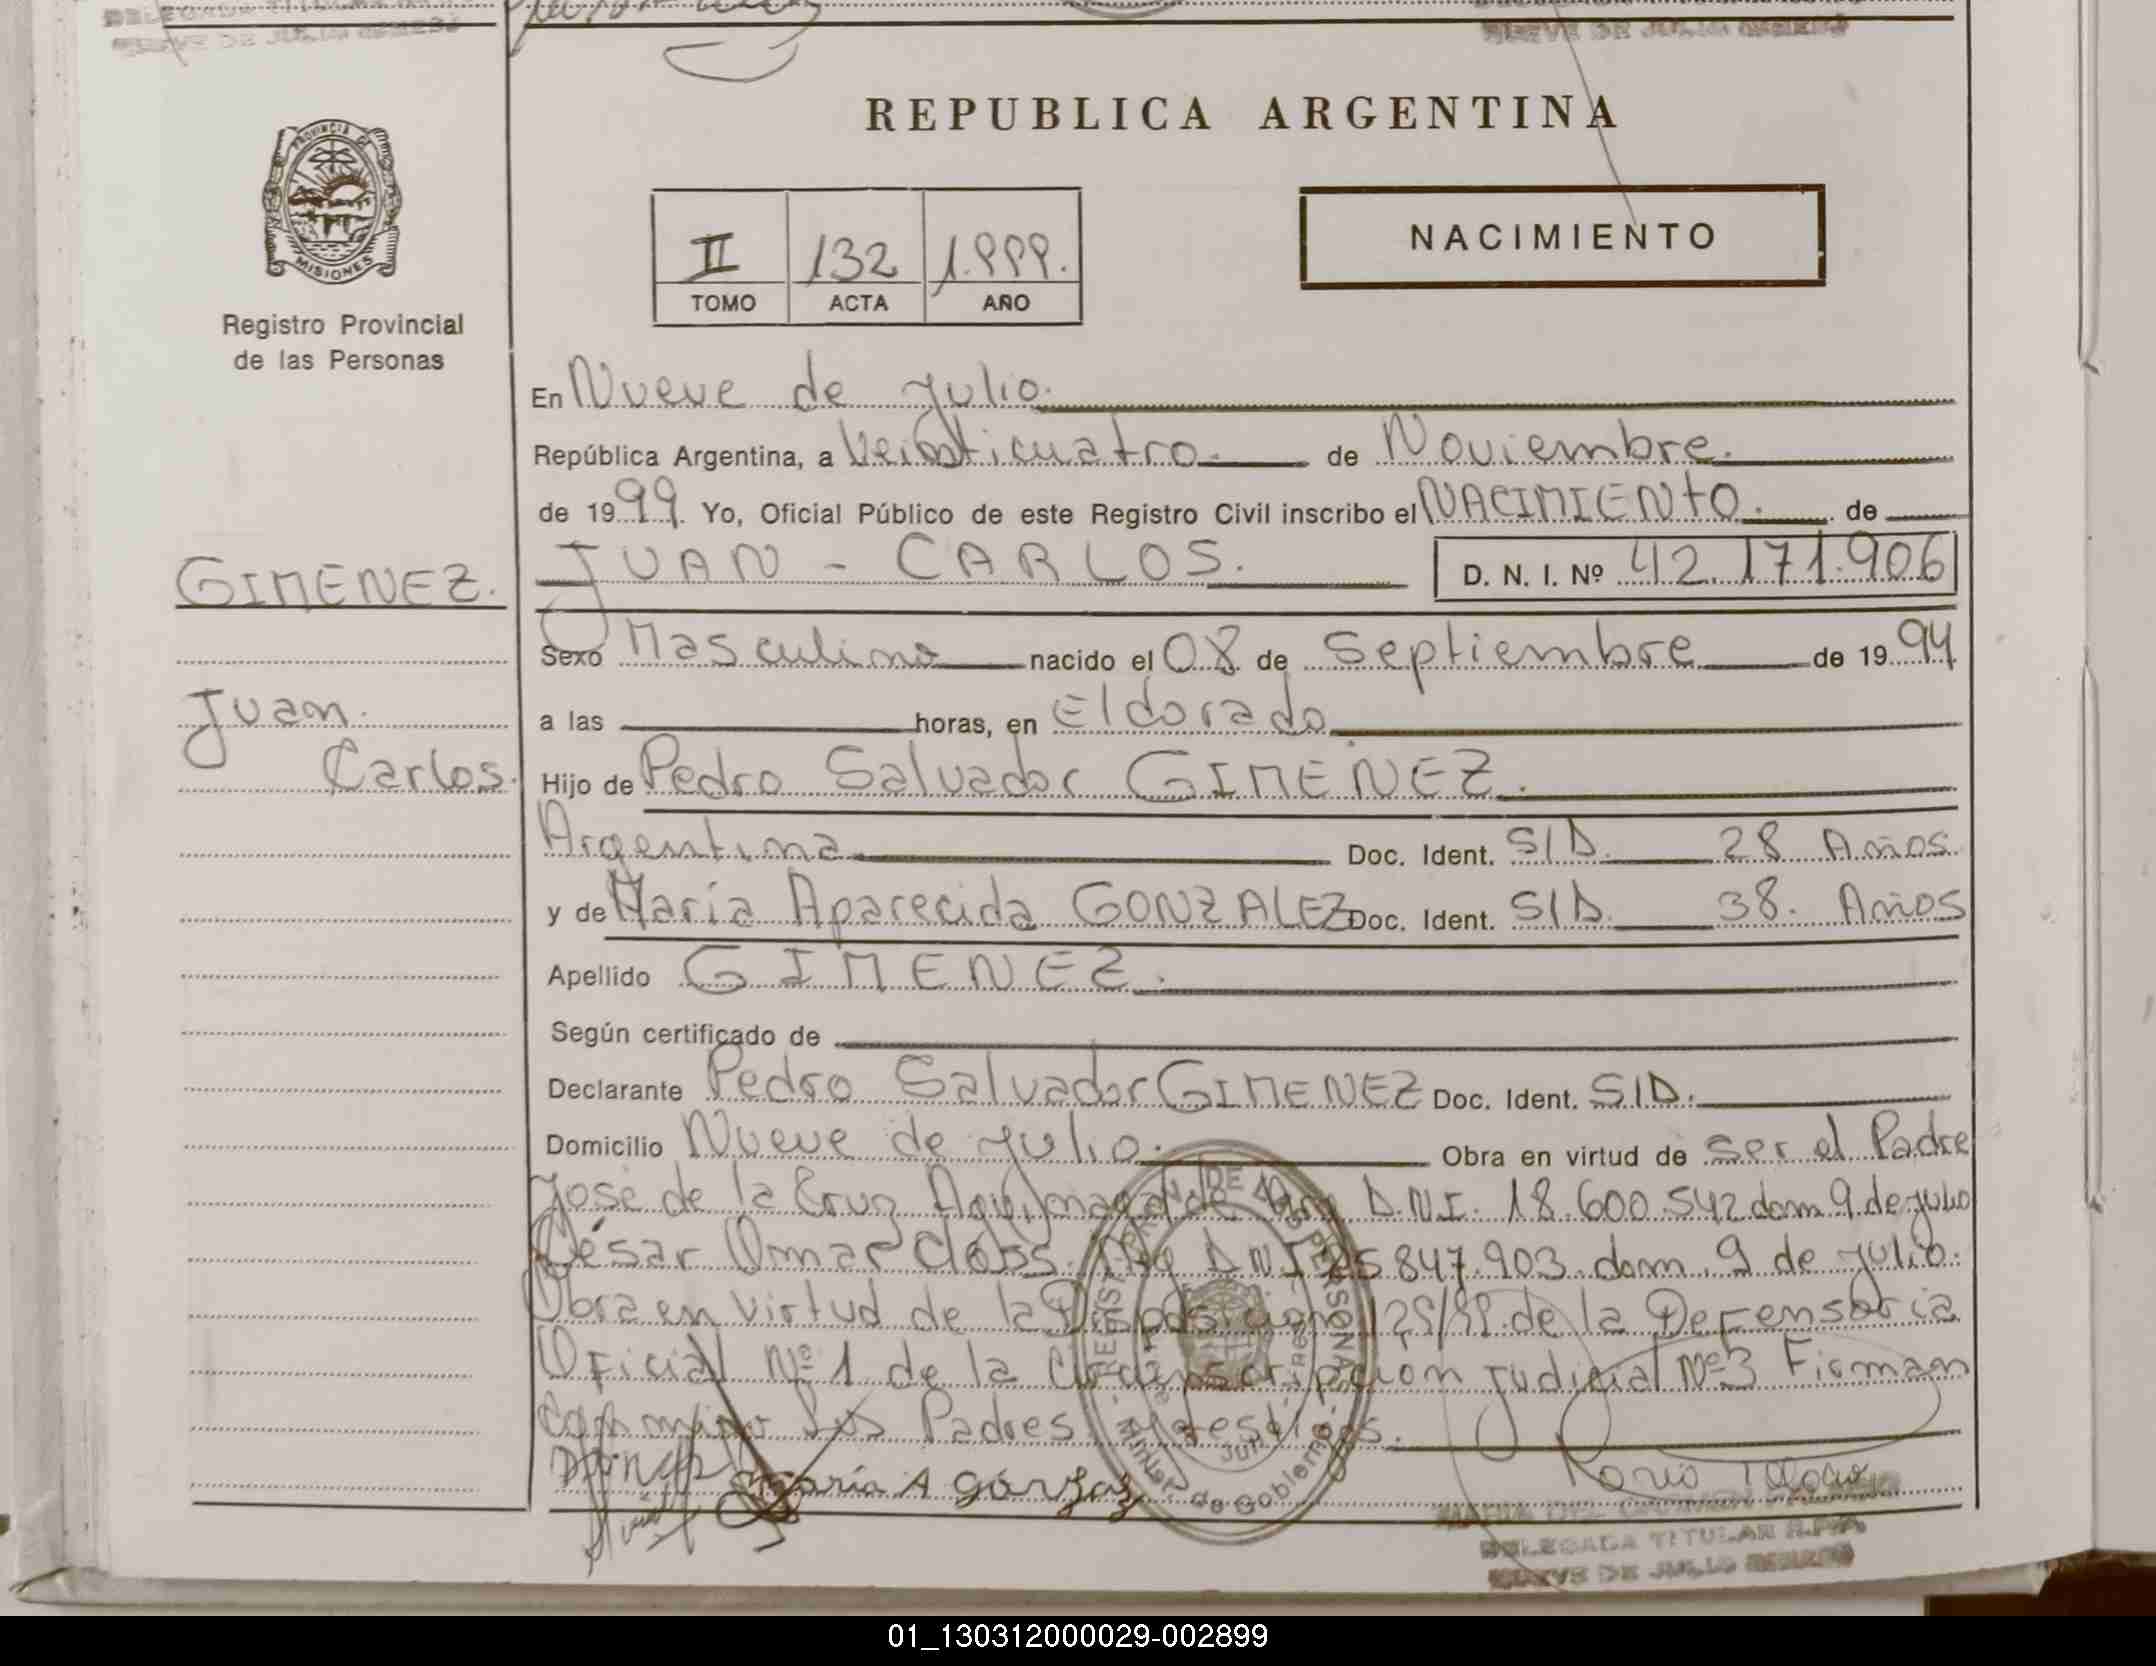 NUEVE DE JULIO
REPUBLICA ARGENTINA
PROVINCIA DE
MISIONES
Registro Provincial
de las Personas
II 132 1.999.
TOMO ACTA AÑO
NACIMIENTO
En Nueve de Julio.
República Argentina, a Veinticuatro. de Noviembre.
de 1999. Yo, Oficial Público de este Registro Civil inscribo el NACIMIENTO. de
GIMENEZ.
JUAN - CARLOS. D. N. I. Nº 42.171.906
Sexo Masculino nacido el 08 de Septiembre de 1994
Juan
Carlos.
a las horas, en Eldorado
Hijo de Pedro Salvador GIMENEZ.
Argentina Doc. Ident. S/D. 28 Años
y de María Aparecida GONZALEZ Doc. Ident. S/D. 38. Años
Apellido GIMENEZ.
Según certificado de
Declarante Pedro Salvador GIMENEZ Doc. Ident. S/D.
Domicilio Nueve de Julio. Obra en virtud de ser el Padre
José de la Cruz Arg D.N.I. 18.600.542 dom 9 de julio
César Omar Closs. Arg D.N.I 25.847.903. dom. 9 de julio.
Obra en virtud de la Disposición 129/99. de la Defensoria
Oficial Nº 1 de la Circunscripcion judicial Nº 3 Firman
Conmigo Los Padres y testigos.
María A
DELEGADA TITULAR R.P.P.
NUEVE DE JULIO
01_130312000029-002899